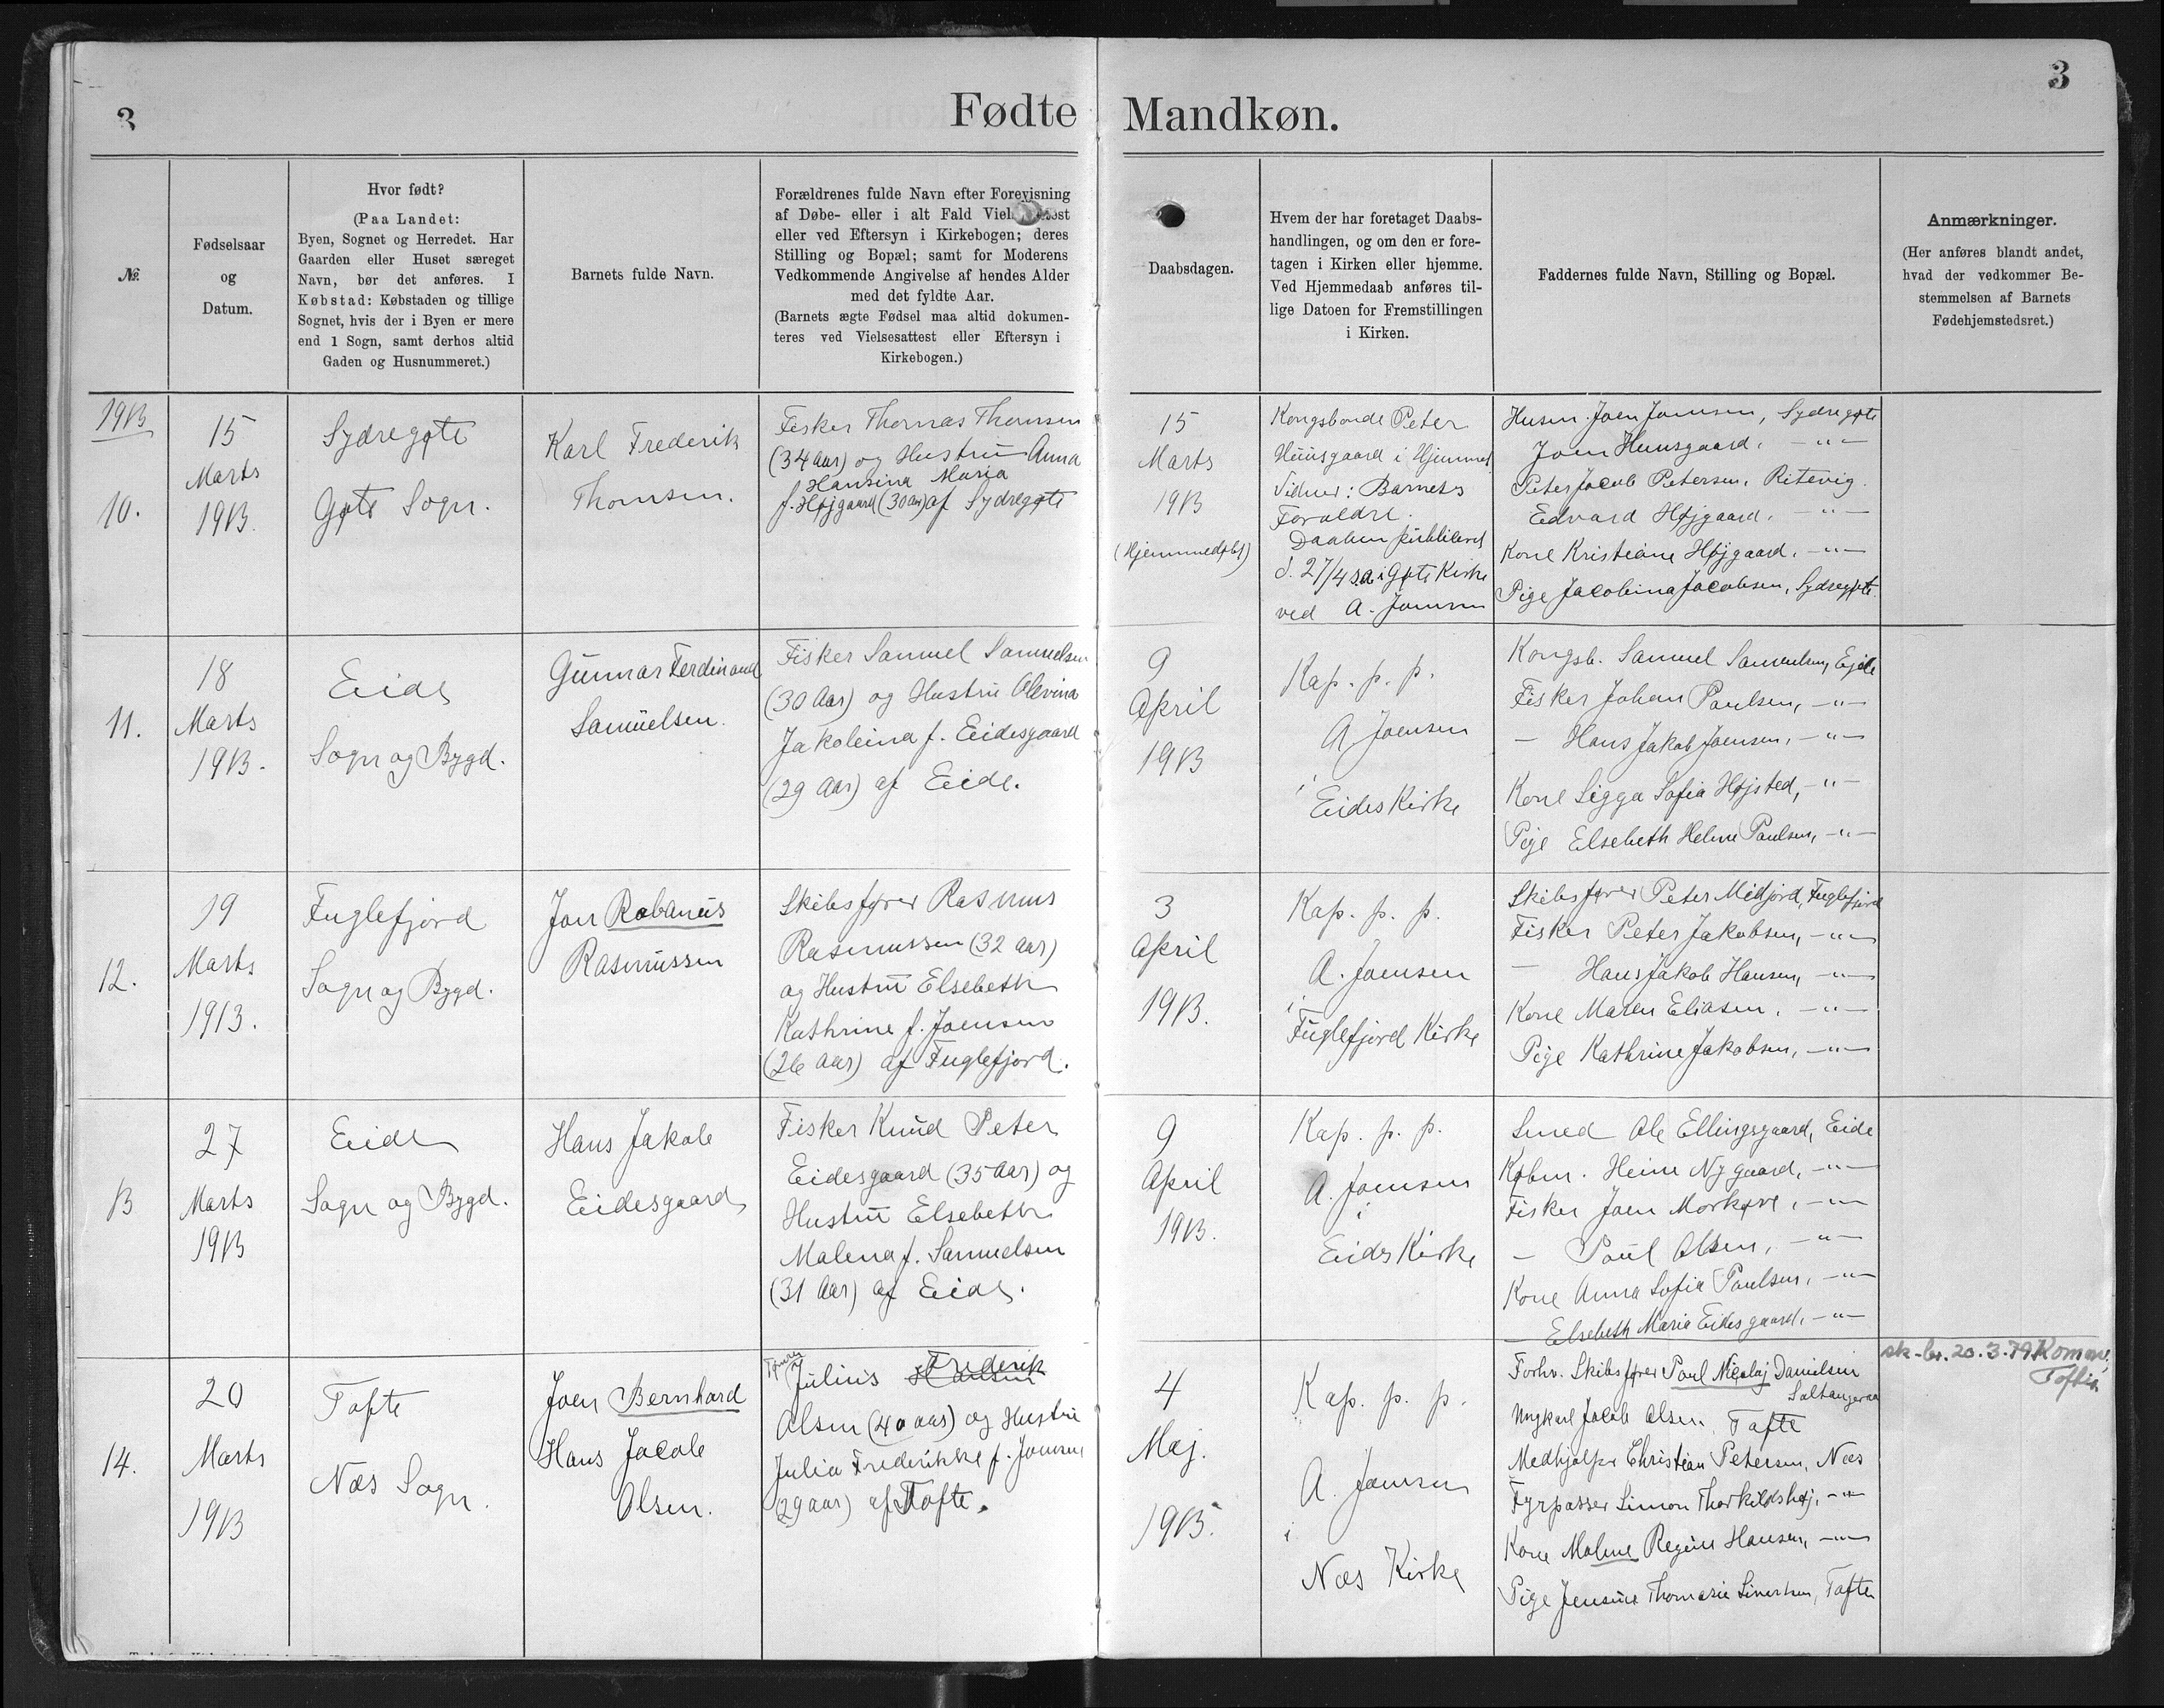 3
Fødte Mandkøn.
3
№
Fødselsaar
og
Datum.
Hvor født?
(Paa Landet:
Byen, Sognet og Herredet. Har
Gaarden eller Huset særeget
Navn, bør det anføres. I
Købstad: Købstaden og tillige
Sognet, hvis der i Byen er mere
end 1 Sogn, samt derhos altid
Gaden og Husnummeret.)
Barnets fulde Navn.
Forældrenes fulde Navn efter Forevisning
af Døbe- eller i alt Fald Vielsesattest
eller ved Eftersyn i Kirkebogen; deres
Stilling og Bopæl; samt for Moderens
Vedkommende Angivelse af hendes Alder
med det fyldte Aar.
(Barnets ægte Fødsel maa altid dokumen-
teres ved Vielsesattest eller Eftersyn i
Kirkebogen.)
Daabsdagen.
Hvem der har foretaget Daabs-
handlingen, og om den er fore-
tagen i Kirken eller hjemme.
Ved Hjemmedaab anføres til-
lige Datoen for Fremstillingen
i Kirken.
Faddernes fulde Navn, Stilling og Bopæl.
Anmærkninger.
(Her anføres blandt andet,
hvad der vedkommer Be-
stemmelsen af Barnets
Fødehjemstedsret.)
1913
10.
15
Marts
1913.
Sydregøte
Gøte Sogn.
Karl Frederik
Thomsen.
Fisker Thomas Thomsen
(34 Aar) og Hustru Anna
Hansina Maria
f. Højgaard (30 Aar) af Sydregøte
15
Marts
1913
(Hjemmedøbt)
Kongsbonde Peter
Huusgaard i Hjemmet
Vidner: Barnets
Forældre.
Daaben publiceret
d. 27/4 s.a. i Gøte Kirke
ved A. Joensen
Husm. Joen Joensen, Sydregøte
Joen Huusgaard, -"-
Peter Jacob Petersen, Ritevig.
Edvard Højgaard, -"-
Kone Kristiane Højgaard, -"-
Pige Jacobina Jacobsen, Sydregøte.
11.
18
Marts
1913.
Eide
Sogn og Bygd.
Gunnar Ferdinand
Samuelsen.
Fisker Samuel Samuelsen
(30 Aar) og Hustru Olevina
Jakobina f. Eidesgaard
(29 Aar) af Eide.
9
April
1913
Kap. p. p.
A Joensen
i
Eides Kirke
Kongsb. Samuel Samuelsen, Ejde
Fisker Johan Paulsen, -"-
- Hans Jakob Joensen, -"-
Kone Sigga Sofia Højsted, -"-
Pige Elsebeth Helene Paulsen, -"-
12.
19
Marts
1913.
Fuglefjord
Sogn og Bygd.
Jon Rabanus
Rasmussen
Skibsfører Rasmus
Rasmussen (32 Aar)
og Hustru Elsebeth
Kathrine f. Joensen
(26 Aar) af Fuglefjord.
3
April
1913.
Kap. p. p.
A. Joensen
i
Fuglefjord Kirke
Skibsfører Peter Midjord, Fuglefjord
Fisker Peter Jakobsen, -"-
- Hans Jakob Hansen, -"-
Kone Maren Eliasen, -"-
Pige Kathrine Jakobsen, -"-
13
27
Marts
1913
Eide
Sogn og Bygd.
Hans Jakob
Eidesgaard
Fisker Knud Peter
Eidesgaard (35 Aar) og
Hustru Elsebeth
Malena f. Samuelsen
(31 Aar) af Eide.
9
April
1913.
Kap. p. p.
A. Joensen
i
Eides Kirke
Smed Ole Ellingsgaard, Eide
Købm. Heine Nygaard, -"-
Fisker Joen Morkøre, -"-
- Poul Olsen, -"-
Kone Anna Sofia Paulsen, -"-
- Elsebeth Maria Eidesgaard, -"-
14.
20
Marts
1913
Tofte
Næs Sogn.
Joen Bernhard
Hans Jacob
Olsen.
Julius Frederik
Olsen (40 aar) og Hustru
Julia Frederikke f. Joensen
(29 aar) af Tofte.
4
Maj.
1913.
Kap. p. p.
A. Joensen
i
Næs Kirke
Forhv. Skibsfører Poul Nicolaj Danielsen
Saltangeraa
Ungkarl Jacob Olsen, Tofte
Medhjælper Christian Petersen, Næs
Fyrpasser Simon Thorkildshøj, -"-
Kone Malene Regine Hansen, -"-
Pige Jensine Thomasie Sivertsen, Tofte
sk-br. 20.3.79 Komm.
Toftir